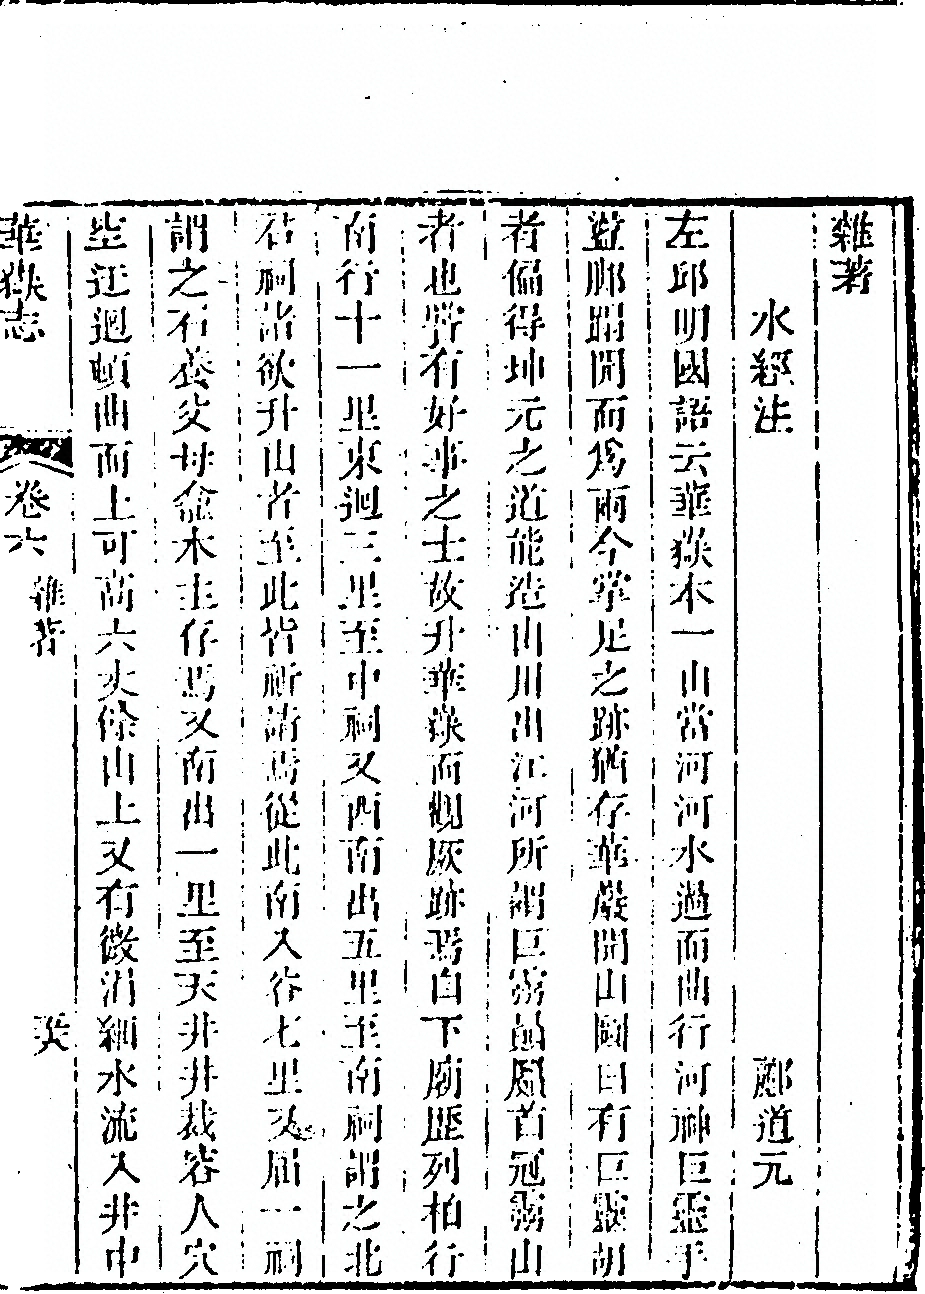 雜著
水經注 酈道元
左邱明國語云華嶽本一山當河河水過而曲行河神巨靈手
盪脚蹋開而為兩今掌足之跡猶存華巖開山圖曰有巨靈胡
者偏得坤元之道能造山川出江河所謂巨靈贔屭首冠靈山
者也嘗有好事之士故升華嶽而觀厥跡焉自下廟歷列柏行
南行十一里東迴三里至中祠又西南出五里至南祠謂之北
君祠諸欲升山者至此皆祈請焉從此南入谷七里又屆一祠
謂之石養父母龕木主存焉又南出一里至天井井裁容人穴
空迂迴頓曲而上可高六丈餘山上又有微涓細水流入井中
華嶽志 卷六 雜著